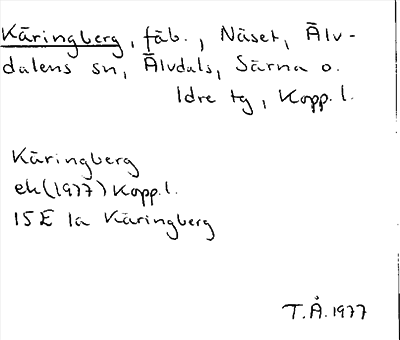 Käringberg, fäb., Näset, Älv-
dalens sn, Älvdals, Särna o.
Idre tg, Kopp. l.
Käringberg
ek (1977) Kopp. l.
15E 1a Käringberg
T.Å. 1977